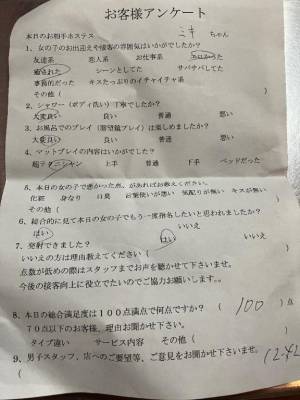 お客様アンケート
本日のお相手ホステス ミキ ちゃん
1、女の子のお出迎えや接客の雰囲気はいかがでしたか?
友達系 恋人系 お仕事系
癒された シーンとしてた サバサバしてた
事務的だった キスたっぷりのイチャイチャ系
その他(
2、シャワー(ボディ洗い)丁寧でしたか?
大変良い 良い 普通 悪い
3、お風呂でのプレイ(潜望鏡プレイ)は楽しめましたか?
大変良い 良い 普通 悪い
4、マットプレイの内容はいかがでした?
超テクニシャン 上手 普通 下手 ベッドだった
5、本日の女の子で悪かった点、があればお教えください。
化粧 身なり 口臭 お言葉使いが悪い 気配りが無い キスが無い
その他(
6、総合的に見て本日の女の子でもう一度指名したいと思われましたか?
はい いいえ
7、発射できました? はい いいえ
いいえの方は理由教えてください(
点数が低めの際はスタッフまでお声を聴かせて下さいませ。
今後の接客向上に役立でたいのでご協力お願いします。
8、本日の総合満足度は100点満点で何点ですか?( 100 )点
70点以下のお客様、理由お聞かせ下さい。
タイプ違い サービス内容 その他(
9、男子スタッフ、店へのご要望等、ご意見をお聞かせ下さいませ。
(
12:42